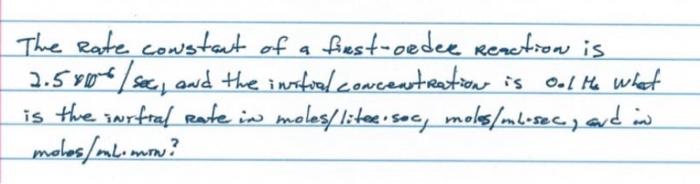 The Rate constant of a first-order Reaction is
2.5 x10⁻⁶/sec, and the initial concentration is 0.1 M. What
is the initial Rate in moles/liter.sec, moles/mL.sec, and in
moles/mL.min?